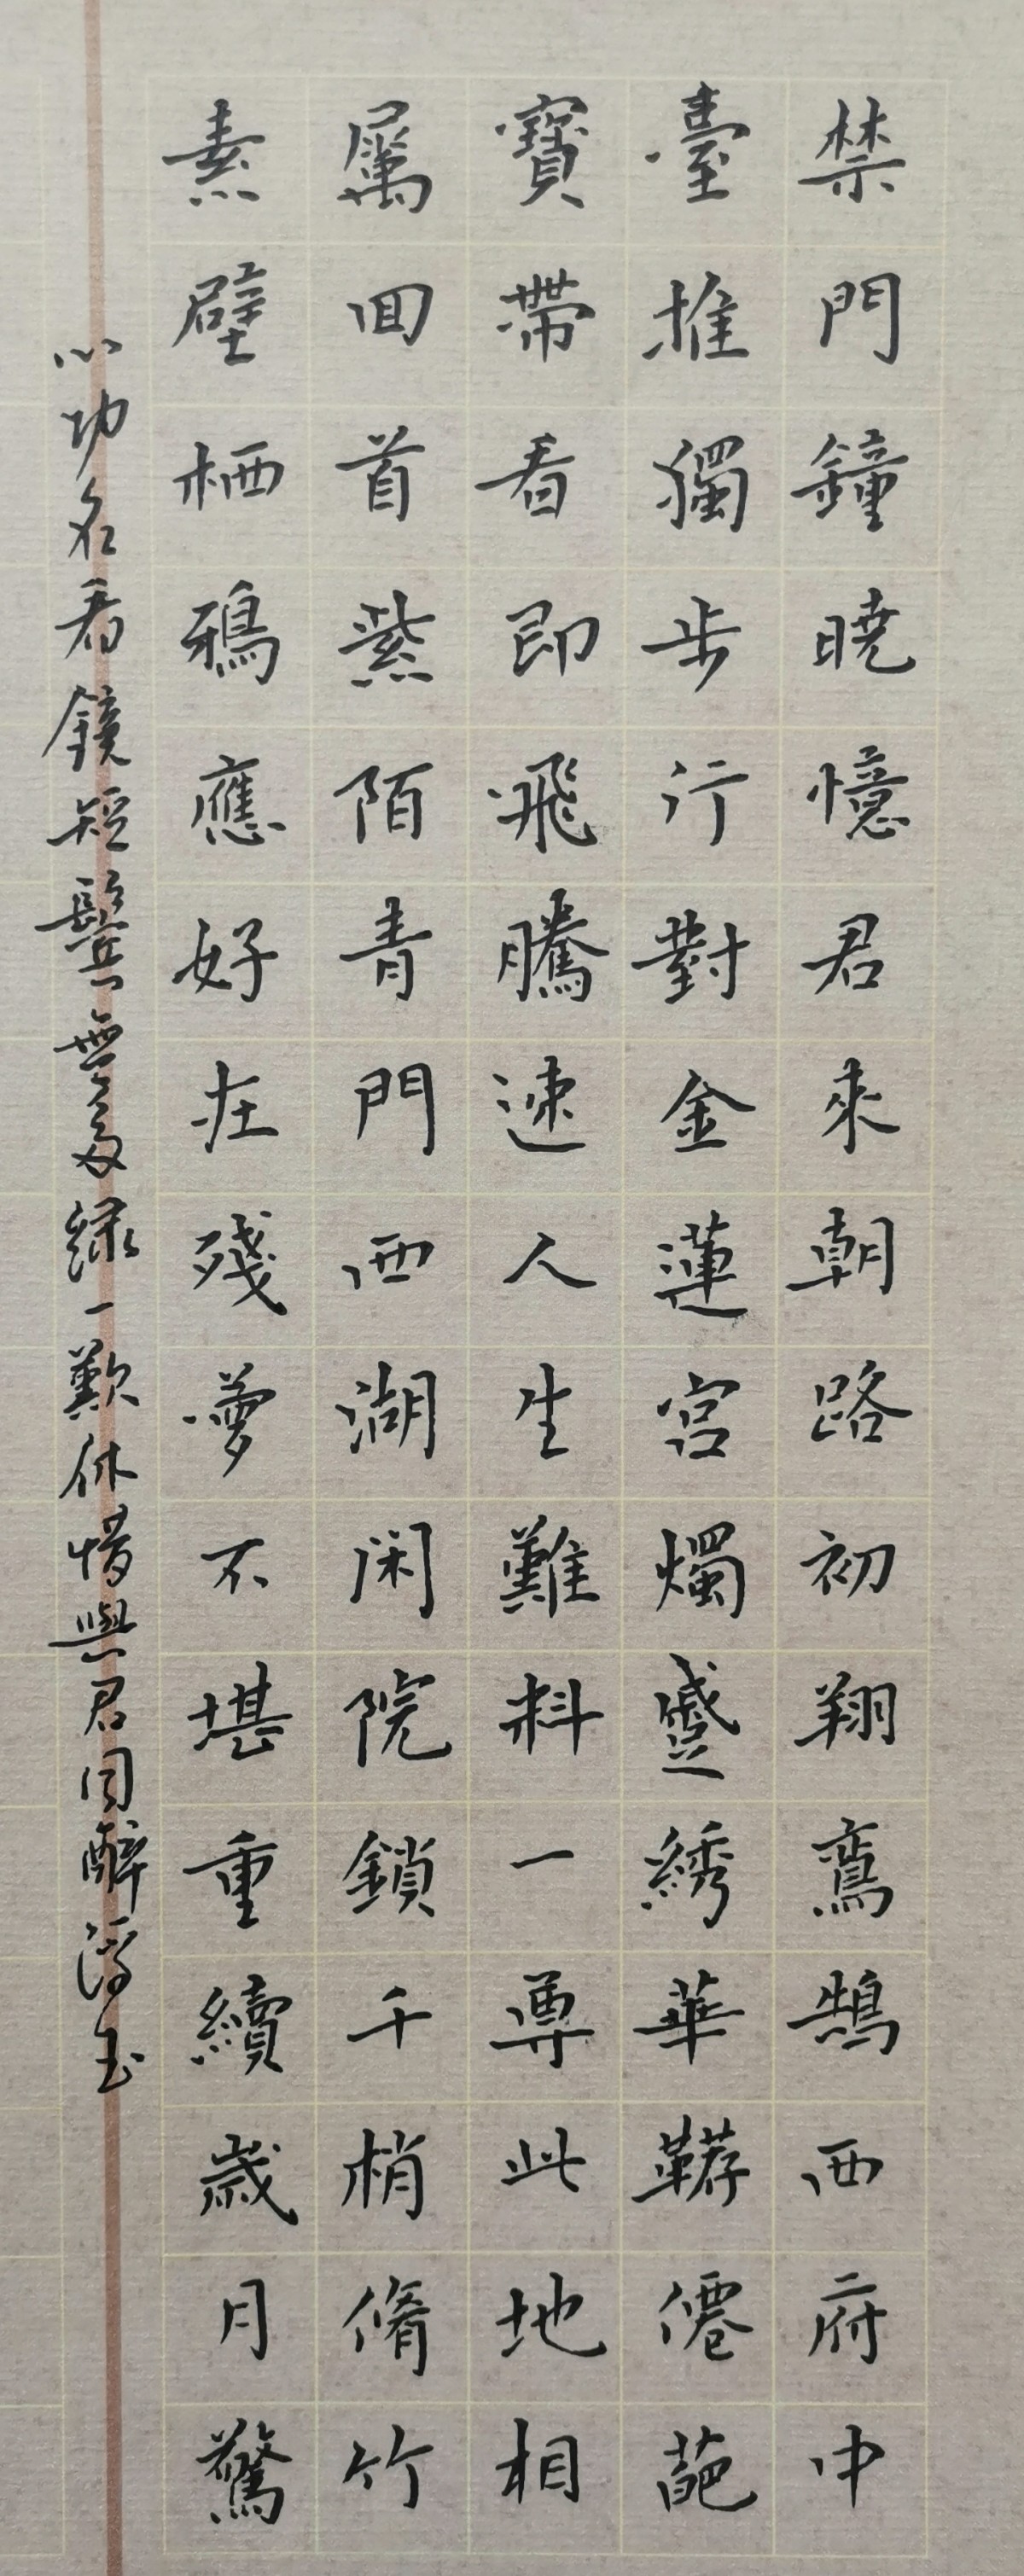 禁門鐘曉憶君來朝路初翔鸞鵠西府中
臺推獨步行對金蓮宮燭蹙綉華韉僊葩
寶帶看即飛騰速人生難料一尊此地相
屬回首紫陌青門西湖閑院鎖千梢脩竹
素壁栖鴉應好在殘夢不堪重續歲月驚
心功名看鏡短鬢無多綠一歎休惜與君同醉浮玉